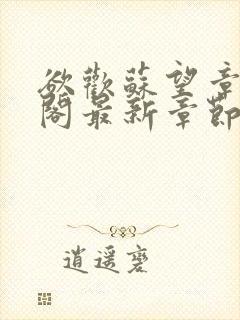 欲歡蘇望章
閣最新章節
逍遥麑